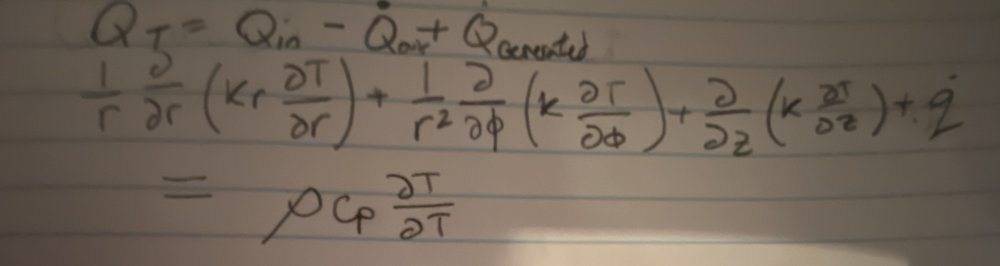 Q_T = Q_in - Q̇_out + Q̇_Generated
1/r ∂/∂r (Kr ∂T/∂r) + 1/r² ∂/∂φ (K ∂T/∂φ) + ∂/∂z (K ∂T/∂z) + q̇
= ρ Cp ∂T/∂T